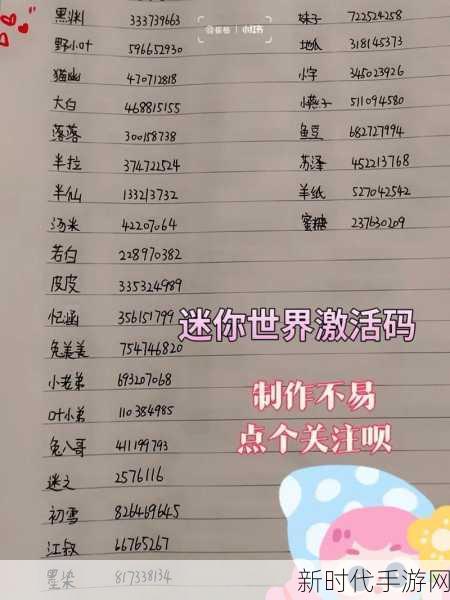 黑渊 333739663
野小叶 596652930
猫幽 470712818
大白 468815155
落落 300158738
半拉 374722524
半仙 133213732
汤米 42207064
若白 228970382
皮皮 335324989
忆涵 356151799
兔美美 754746820
小老弟 693207068
叶小弟 110384985
兔八哥 411199793
迷之 2576116
初雪 826469645
江叙 66765267
墨染 817338134
妹子 722524258
地瓜 318145373
小宇 345023926
小燕子 511094580
鱼豆 682727994
苏泽 452213768
羊纸 527042542
蜜糖 237630209
小红书
迷你世界激活码
制作不易
点个关注呗
新时代手游网